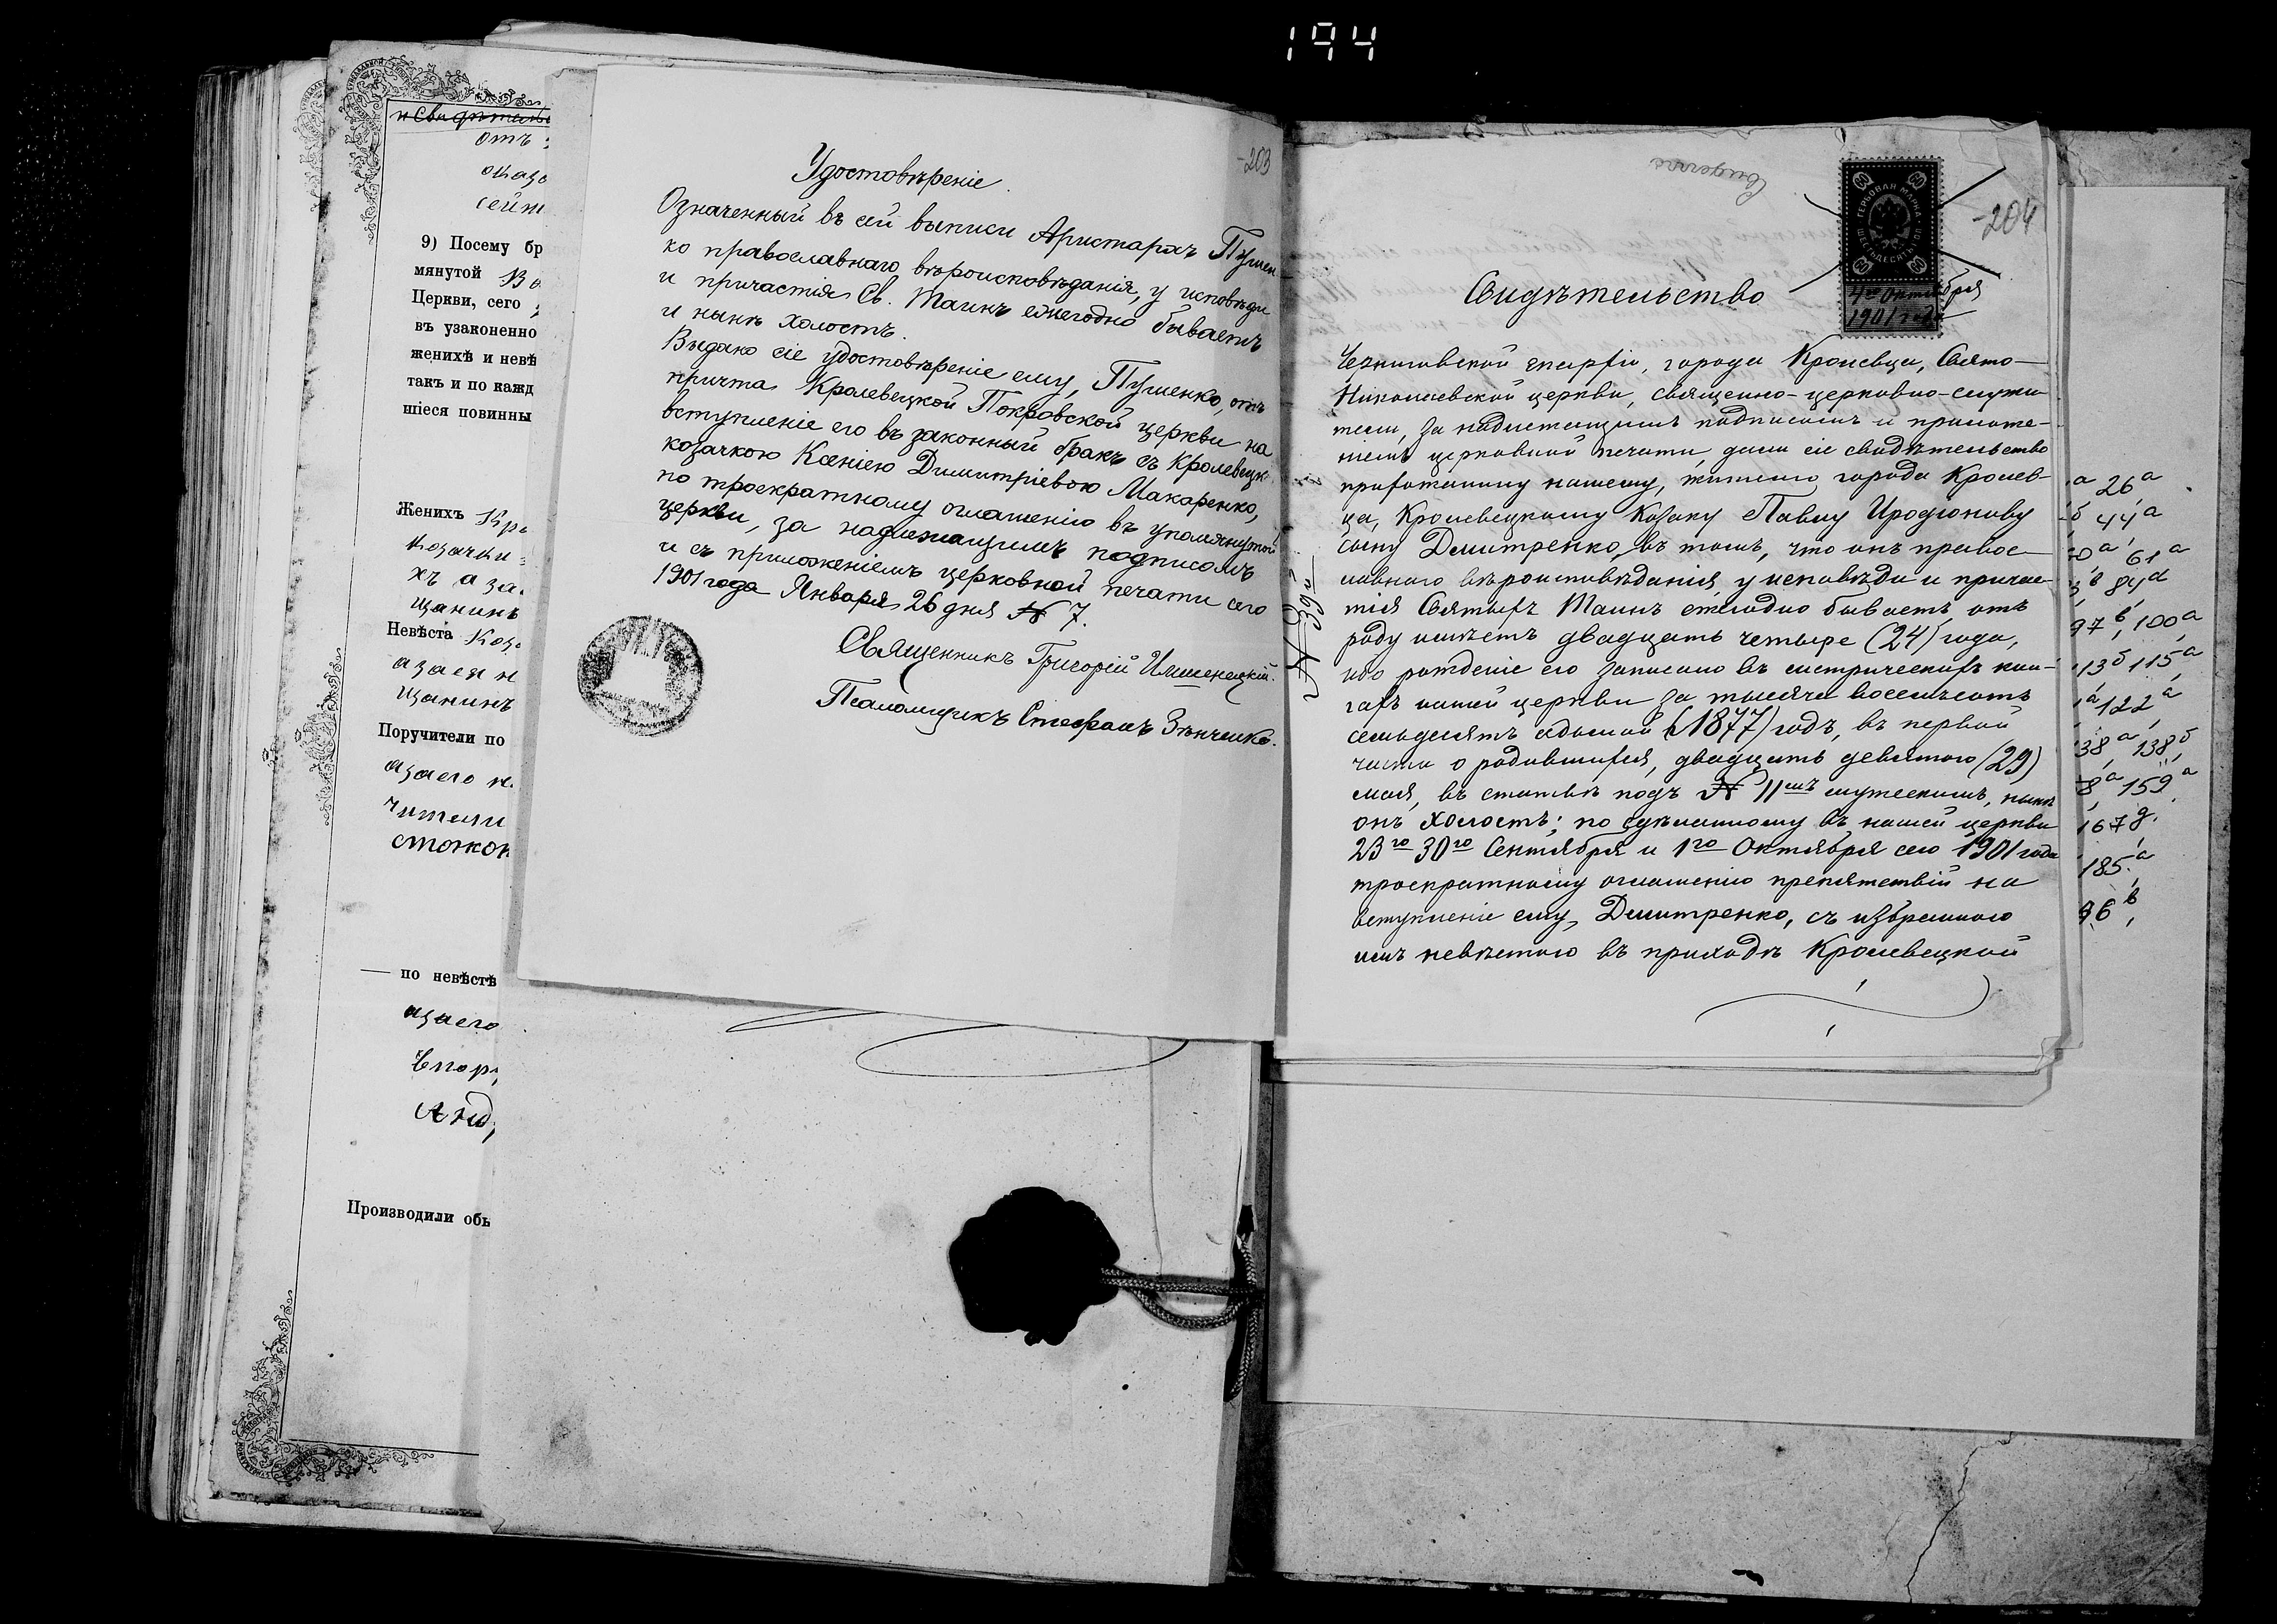 194
и свидетель
отъ
оказа
сейм
9) Посему бр
мянутой Во
Церкви, сего
въ узаконенно
женихѣ и невѣ
такъ и по кажд
шіеся повинны
Женихъ Кро
козачки
хъ а за
щанинъ
Невѣста Коз
азаея н
щанинъ
Поручители по
азаего н
чители
стокон
— по невѣстѣ
азаего
Егор
Анд
Производили обы
-203
Удостовѣреніе.
Означенный въ сей выписи Аристархъ Пушен-
ко православнаго вѣроисповѣданія, у исповѣди
и причастія Св. Таинъ ежегодно бываетъ
и нынѣ холостъ.
Выдано сіе удостовѣреніе ему, Пушенко, отъ
причта Кролевецкой Покровской церкви на
вступленіе его въ законный бракъ съ Кролевецк.
козачкою Ксеніею Димитріевою Макаренко,
по троекратному оглашенію въ упомянутой
церкви, за надлежащимъ подписомъ
и съ приложеніемъ церковной печати сего
1901 года Января 26 дня № 7.
Священникъ Григорій Имшенецкій.
Псаломщикъ Стефанъ Зѣнченко.
-204
ГЕРБОВАЯ МАРКА
ШЕСТЬДЕСЯТЪ КОП.
60 60
60 60
4го Октября
1901 года
Свидѣтельство
Черниговской епархіи, города Кролевца, Свято-
Николаевской церкви, священно-церковно-служи-
тели, за надлежащимъ подписомъ и приложе-
ніемъ церковной печати, дали сіе свидѣтельство
прихожанину нашему, жителю города Кролев-
ца, Кролевецкому Козаку Павлу Иродіонову
сыну Дмитренко, въ томъ, что онъ правос-
лавнаго вѣроисповѣданія, у исповѣди и причас-
тія Святыхъ Таинъ ежегодно бываетъ, отъ
роду имѣетъ двадцать четыре (24) года,
ибо рожденіе его записано въ метрическихъ кни-
гахъ нашей церкви за тысяча восемьсотъ
семьдесятъ седьмой (1877) годъ, въ первой
части о родившихся, двадцать девятого (29)
мая, въ статьѣ подъ № 11мъ мужескимъ, нынѣ
онъ холостъ; по сдѣланному въ нашей церкви
23го 30го Сентября и 1го Октября сего 1901 года
троекратному оглашенію препятствій на
вступленіе ему, Дмитренко, съ избранною
имъ невѣстою въ приходѣ Кролевецкой
№ 39й
26а
44а
61а
84а
97в, 100а
13б 115а
122а
38а 138б
8а 159а
167д.
185а
96в,